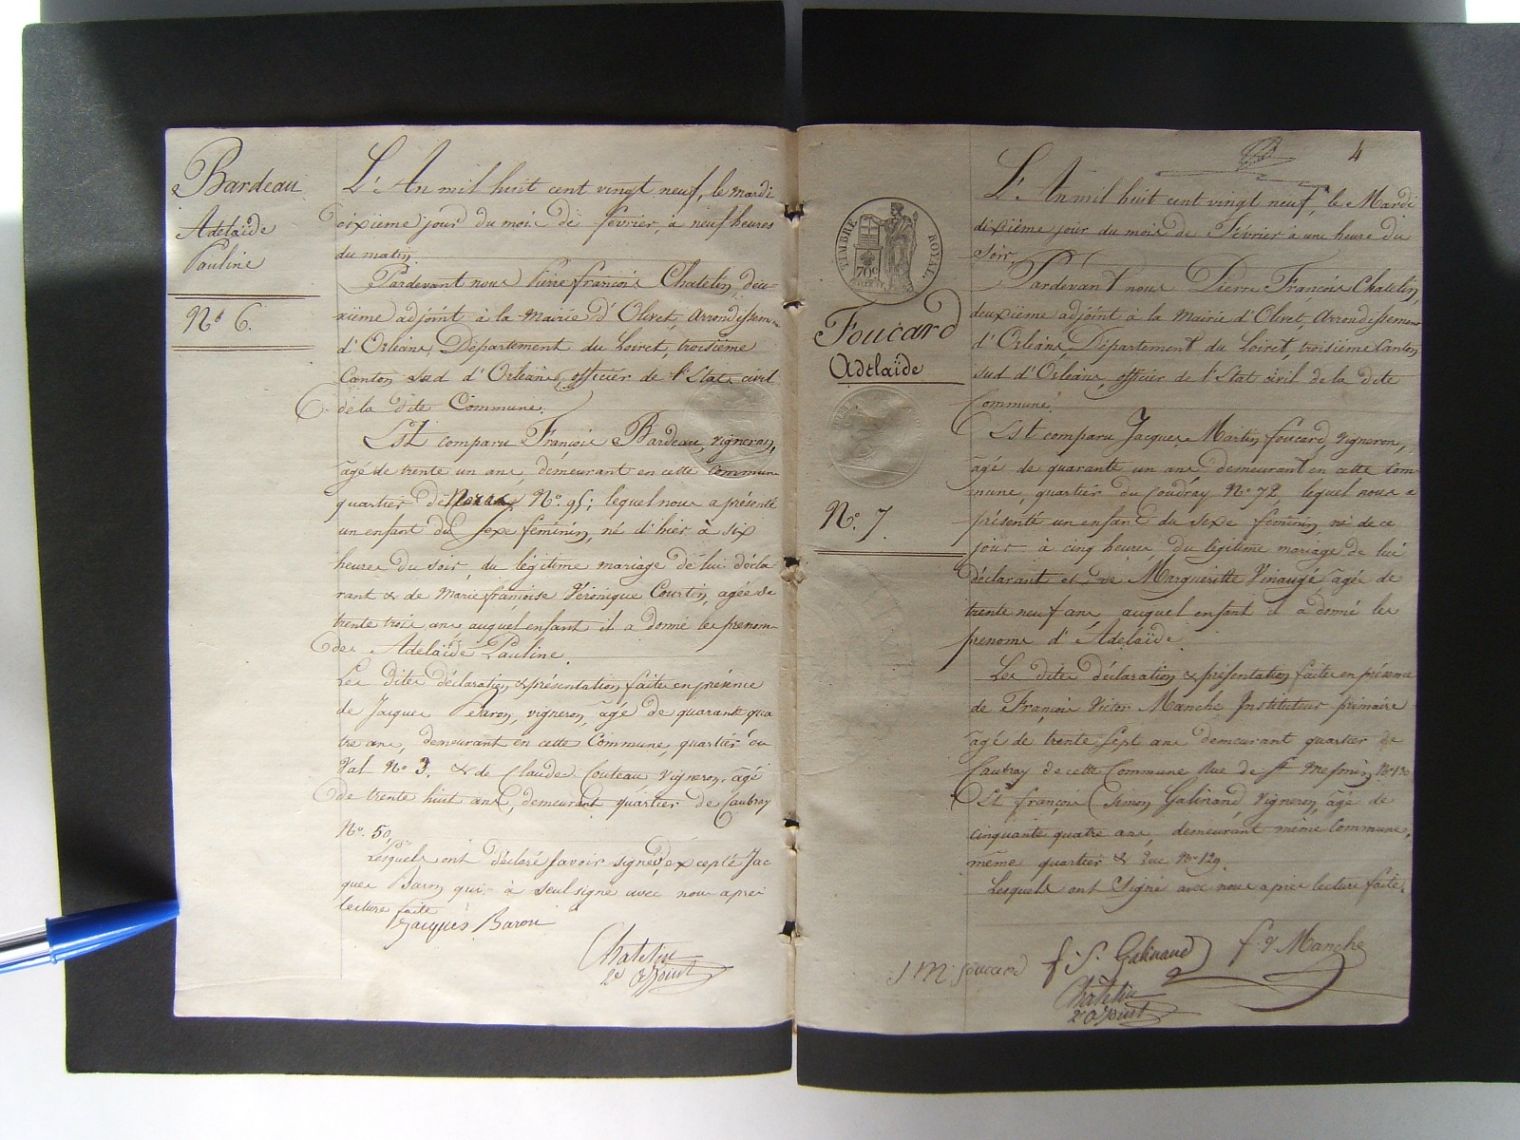 Bardeau
Adelaïde
Pauline
Nº 6.
L'An mil huit cent vingt neuf, le mardi
dixième jour du mois de février à neuf heures
du matin.
Pardevant nous Pierre françois Chatelin, deu-
xième adjoint à la Mairie d'Olivet, Arrondissem
d'Orléans, Département du Loiret, troisième
Canton sud d'Orléans, officier de l'Etat civil
de la dite Commune.
Est comparu François Bardeau, vigneron,
âgé de trente un ans, demeurant en cette Commune
quartier de Nº 95; lequel nous a présenté
un enfant du sexe féminin, né d'hier à six
heures du soir, du légitime mariage de lui décla
rant & de Marie françoise Véronique Courtin, agée de
trente trois ans auquel enfant il a donné les prenom
de Adelaïde Pauline.
Les dites déclaration & présentation faite en présence
de Jacques Baron, vigneron, âgé de quarante qua
tre ans, demeurant en cette Commune, quartier du
Val Nº 3. & de Claude Couteau vigneron, âgé
de trente huit ans, demeurant quartier de Caubray
Nº. 50,
Lesquels ont déclaré savoir signer, excepté Jac
ques Baron qui à seul signé avec nous après
lecture faite
Jacques Baron
Chatelin
2e adjoint
4
TIMBRE ROYAL
70c
Foucard
Adelaïde
Nº. 7
L'An mil huit cent vingt neuf, le Mardi
dixième jour du mois de Février à une heure du
soir,
Pardevant nous Pierre François Chatelin,
deuxième adjoint à la Mairie d'Olivet, Arrondissement
d'Orléans, Département du Loiret, troisième Canton
sud d'Orléans, officier de l'Etat civil de la dite
Commune.
Est comparu Jacques Martin foucard, Vigneron,
âgé de quarante un ans demeurant en cette Com
mune, quartier du Coudray Nº 72, lequel nous a
présenté un enfant du sexe féminin né de ce
jour à cinq heures du légitime mariage de lui
déclarant et de Marguerite Vinaugé âgé de
trente neuf ans, auquel enfant il a donné les
prenoms d'Adelaïde.
Les dites déclaration & présentation faite en présence
de François Victor Manche Instituteur primaire
âgé de trente sept ans demeurant quartier de
Caubray de cette Commune Rue de St Mesmin
Et françois Simon Galinand, Vigneron, âgé de
cinquante quatre ans, demeurant même Commune,
même quartier & rue Nº 129.
Lesquels ont signé avec nous après lecture faite.
J. M. foucard f. S. Galinand f. V. Manche
Chatelin
2e adjoint